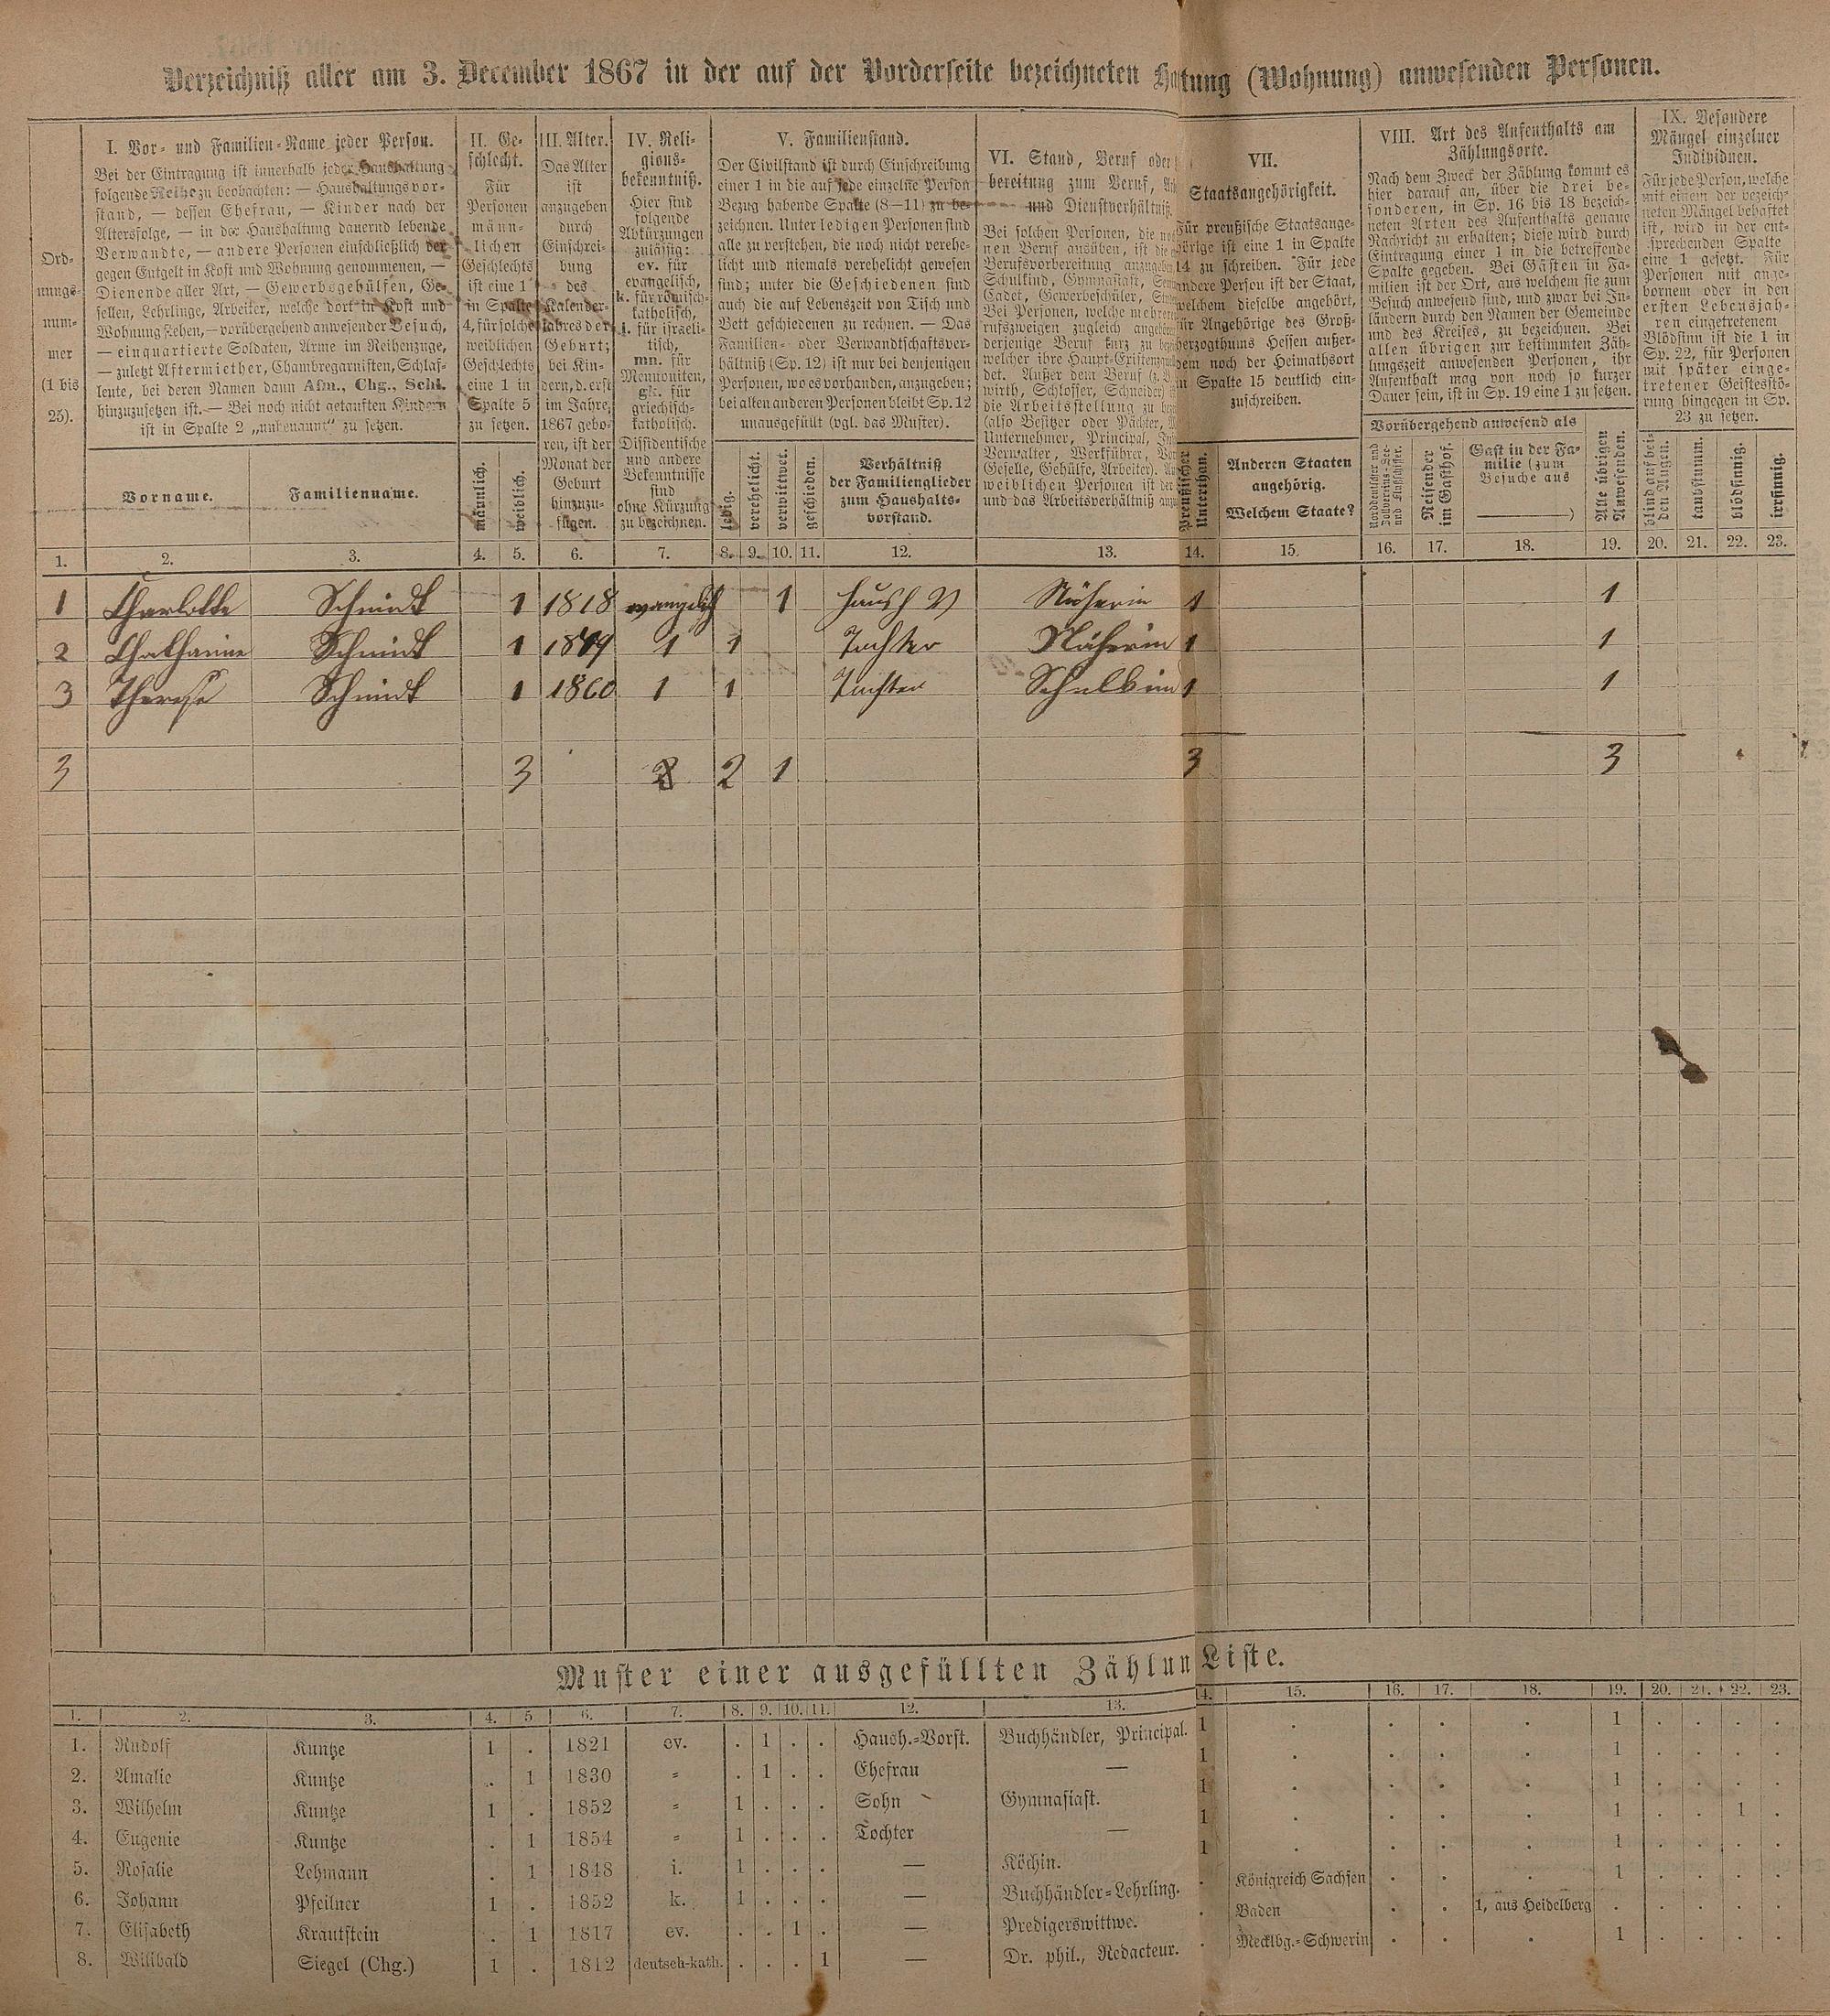 Verzeichniß aller am 3. December 1867 in der auf der Vorderseite bezeichneten Haltung (Wohnung) anwesenden Personen.
Ord-
nungs-
num-
mer
(1 bis
25).
I. Vor- und Familien-Name jeder Person.
Bei der Eintragung ist innerhalb jeder Haushaltung
folgende Reihe zu beobachten: — Haushaltungsvor-
stand, — dessen Ehefrau, — Kinder nach der
Altersfolge, — in der Haushaltung dauernd lebende
Verwandte, — andere Personen einschließlich der
gegen Entgelt in Kost und Wohnung genommenen, —
Dienende aller Art, — Gewerbsgehülfen, Ge-
sellen, Lehrlinge, Arbeiter, welche dort in Kost und
Wohnung stehen, — vorübergehend anwesender Besuch,
— einquartierte Soldaten, Arme im Reihenzuge,
— zuletzt Aftermiether, Chambregarnisten, Schlaf-
leute, bei deren Namen dann Afm., Chg., Schl.
hinzuzusetzen ist. — Bei noch nicht getauften Kindern
ist in Spalte 2 „unbenannt“ zu setzen.
Vorname.
Familienname.
II. Ge-
schlecht.
Für
Personen
männ-
lichen
Geschlechts
ist eine 1
in Spalte
4, für solche
weiblichen
Geschlechts
eine 1 in
Spalte 5
zu setzen.
männlich.
weiblich.
III. Alter.
Das Alter
ist
anzugeben
durch
Einschrei-
bung
des
Kalender-
jahres der
Geburt;
bei Kin-
dern, d. erst
im Jahre
1867 gebo-
ren, ist der
Monat der
Geburt
hinzuzu-
fügen.
IV. Reli-
gions-
bekenntniß.
Hier sind
folgende
Abkürzungen
zulässig:
ev. für
evangelisch,
k. für römisch-
katholisch,
i. für israeli-
tisch,
mn. für
Mennoniten,
gk. für
griechisch-
katholisch.
Dissidentische
und andere
Bekenntnisse
sind
ohne Kürzung
zu bezeichnen.
V. Familienstand.
Der Civilstand ist durch Einschreibung
einer 1 in die auf jede einzelne Person
Bezug habende Spalte (8—11) zu be-
zeichnen. Unter ledigen Personen sind
alle zu verstehen, die noch nicht verehe-
licht und niemals verehelicht gewesen
sind; unter die Geschiedenen sind
auch die auf Lebenszeit von Tisch und
Bett geschiedenen zu rechnen. — Das
Familien- oder Verwandtschaftsver-
hältniß (Sp. 12) ist nur bei denjenigen
Personen, wo es vorhanden, anzugeben;
bei allen anderen Personen bleibt Sp. 12
unausgefüllt (vgl. das Muster).
ledig.
verehelicht.
verwittwet.
geschieden.
Verhältniß
der Familienglieder
zum Haushalts-
vorstand.
VI. Stand, Beruf oder
bereitung zum Beruf,
und Dienstverhältniß.
Bei solchen Personen, die
nen Beruf ausüben, ist die
Berufsvorbereitung anzugeben
Schulkind, Gymnasiast,
Cadet, Gewerbeschüler,
Bei Personen, welche mehreren
rufszweigen zugleich angehören
derjenige Beruf kurz zu
welcher ihre Haupt-Existenz
det. Außer dem Beruf
wirth, Schlosser, Schneider)
die Arbeitsstellung zu
(also Besitzer oder Pächter,
Unternehmer, Principal,
Verwalter, Werkführer,
Geselle, Gehülfe, Arbeiter).
weiblichen Personen ist der
und das Arbeitsverhältniß
VII.
Staatsangehörigkeit.
Für preußische Staatsange-
hörige ist eine 1 in Spalte
14 zu schreiben. Für jede
andere Person ist der Staat,
welchem dieselbe angehört,
für Angehörige des Groß-
herzogthums Hessen außer-
dem noch der Heimathsort
in Spalte 15 deutlich ein-
zuschreiben.
Preußischer
Unterthan.
Anderen Staaten
angehörig.
Welchem Staate?
VIII. Art des Aufenthalts am
Zählungsorte.
Nach dem Zweck der Zählung kommt es
hier darauf an, über die drei be-
sonderen, in Sp. 16 bis 18 bezeich-
neten Arten des Aufenthalts genaue
Nachricht zu erhalten; diese wird durch
Eintragung einer 1 in die betreffende
Spalte gegeben. Bei Gästen in Fa-
milien ist der Ort, aus welchem sie zum
Besuch anwesend sind, und zwar bei In-
ländern durch den Namen der Gemeinde
und des Kreises, zu bezeichnen. Bei
allen übrigen zur bestimmten Zäh-
lungszeit anwesenden Personen, ihr
Aufenthalt mag von noch so kurzer
Dauer sein, ist in Sp. 19 eine 1 zu setzen.
Vorübergehend anwesend als
Norddeutscher und
Zollvereins-See-
und Flußschiffer.
Reisender
im Gasthof.
Gast in der Fa-
milie (zum
Besuche aus
)
Alle übrigen
Anwesenden.
IX. Besondere
Mängel einzelner
Individuen.
Für jede Person, welche
mit einem der bezeich-
neten Mängel behaftet
ist, wird in der ent-
sprechenden Spalte
eine 1 gesetzt. Für
Personen mit ange-
bornem oder in den
ersten Lebensjah-
ren eingetretenem
Blödsinn ist die 1 in
Sp. 22, für Personen
mit später einge-
tretener Geistesstö-
rung hingegen in Sp.
23 zu setzen.
blind auf bei-
den Augen.
taubstumm.
blödsinnig.
irrsinnig.
1. 2. 3. 4. 5. 6. 7. 8. 9. 10. 11. 12. 13. 14. 15. 16. 17. 18. 19. 20. 21. 22. 23.
1 Charlotte Schmidt 1 1818 evangelisch 1 Haush V Näherin 1 1
2 Chatharine Schmidt 1 1849 1 1 Tochter Näherin 1 1
3 Therese Schmidt 1 1860 1 1 Tochter Schulkind 1 1
3 3 2 1 3 3
Muster einer ausgefüllten Zählun Liste.
1. 2. 3. 4. 5 6. 7. 8. 9. 10. 11. 12. 13. 14. 15. 16. 17. 18. 19. 20. 21. 22. 23.
1. Rudolf Kuntze 1 . 1821 ev. . 1 . . Haush.-Vorst. Buchhändler, Principal. 1 . . . . 1 . . . .
2. Amalie Kuntze . 1 1830 „ . 1 . . Ehefrau — 1 . . . . 1 . . . .
3. Wilhelm Kuntze 1 . 1852 „ 1 . . . Sohn Gymnasiast. 1 . . . . 1 . . . .
4. Eugenie Kuntze . 1 1854 „ 1 . . . Tochter — 1 . . . . 1 . . 1 .
5. Rosalie Lehmann . 1 1848 i. 1 . . . — Köchin. 1 . . . . 1 . . . .
6. Johann Pfeilner 1 . 1852 k. 1 . . . — Buchhändler-Lehrling. . Königreich Sachsen . . . 1 . . . .
7. Elisabeth Krautstein . 1 1817 ev. . . 1 . — Predigerswittwe. . Baden . . 1, aus Heidelberg . . . . .
8. Wilibald Siegel (Chg.) 1 . 1812 deutsch-kath. . . . 1 — Dr. phil., Redacteur. . Mecklbg.-Schwerin . . . 1 . . . .